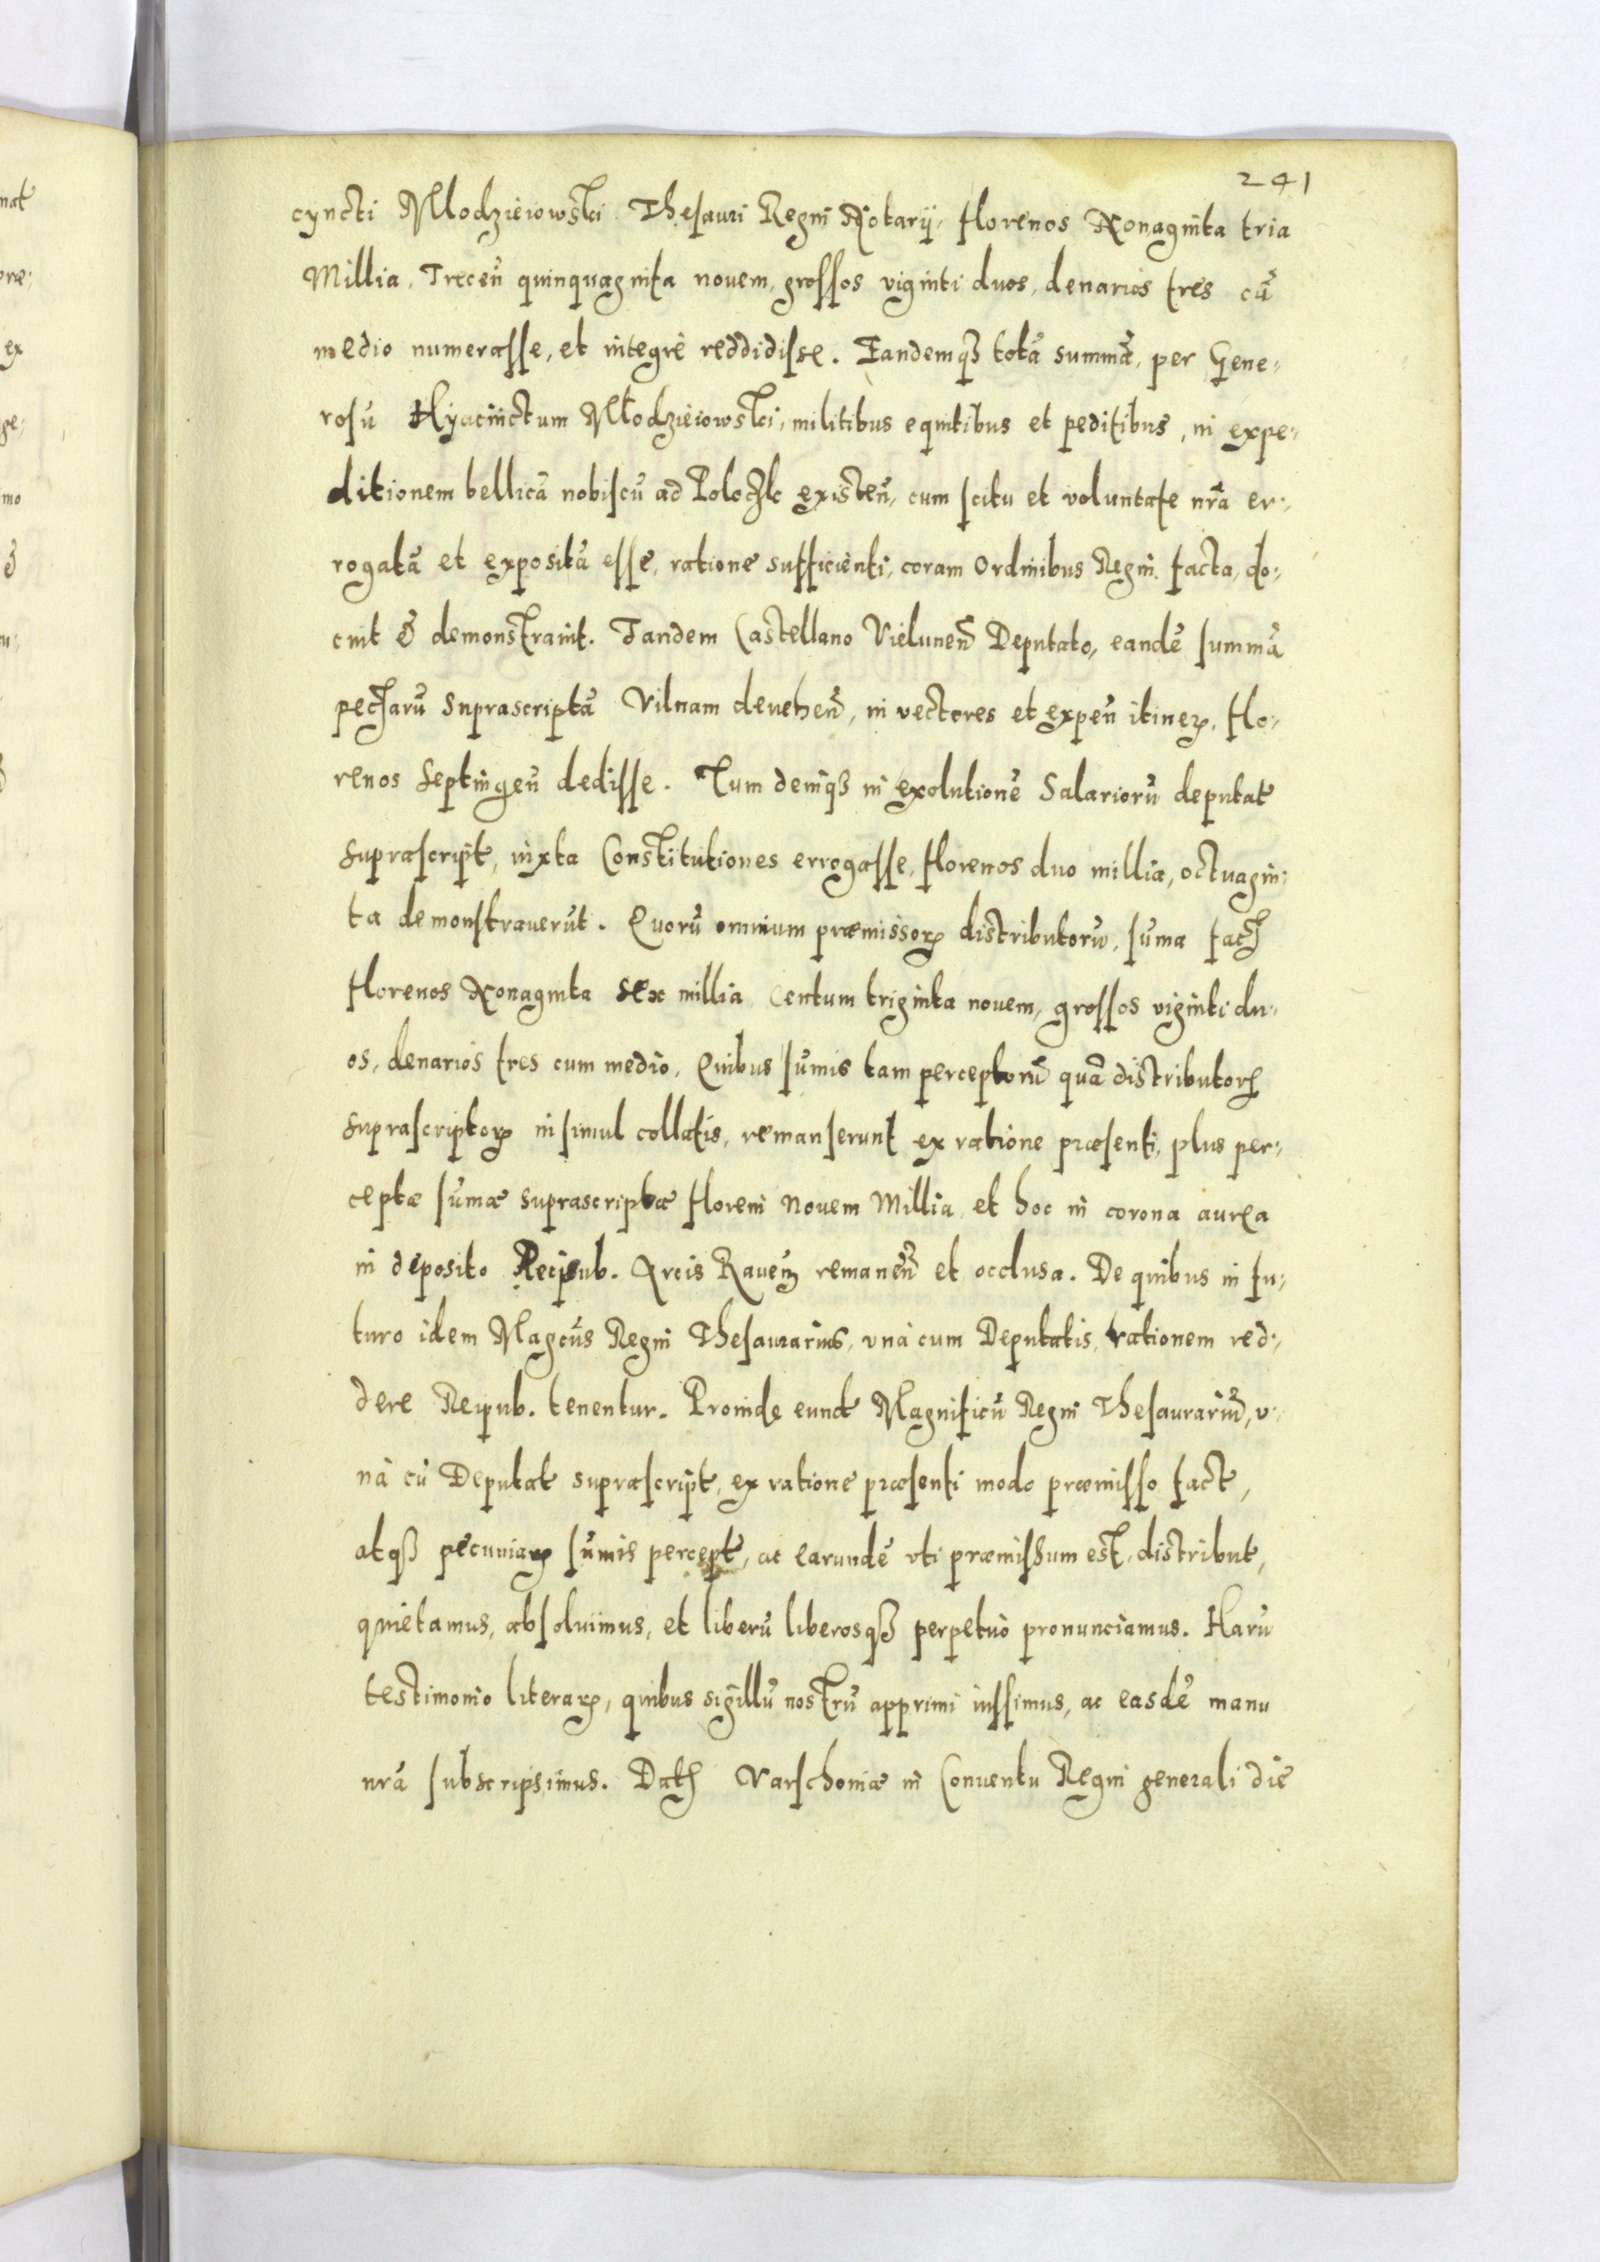 241
cyncti Młodzieiowski Thesauri Regni Notarij, florenos Nonaginta tria
Millia, Treceñ quinquaginta nouem, grossos viginti duos, denarios tres cũ
medio numerasse, et integrè reddidisse. Eandemqȝ totã summã, per Gene-
rosũ Hyacinctum Młodzieiowski, militibus equitibus et peditibus, in expe-
ditionem bellicã nobiscũ ad Poloczk existeñ, cum scitu et voluntate nr̃a er-
rogatã et expositã esse, ratione sufficienti, coram Ordinibus Regni facta, do-
cuit & demonstrauit. Tandem Castellano Vieluneñ Deputato, eandẽ summã
peccȝarũ suprascriptã Vilnam deueheñ, in vectores et expeñ itineꝝ, flo-
renos septingeñ dedisse. Tum deniqȝ in exolutionẽ Salariorũ deputat
suprascript, iuxta Constitutiones errogasse, florenos duo millia, octuagin-
ta demonstrauerũt. Quorũ omnium præmissoꝝ distributorũ, sũma facȝ
florenos Nonaginta sex millia Centum triginta nouem, grossos viginti du-
os, denarios tres cum medio. Quibus sũmis tam perceptorũ quã distributoꝝ
suprascriptoꝝ insimul collatis, remanserunt ex ratione præsenti, plus per-
ceptæ sũmæ suprascriptæ floreni Nouem Millia, et hoc in corona aurea
in deposito Reipub. Arcis Raueñ remaneñ et occlusa. De quibus in fu-
turo idem Magcũs Regni Thesaurarius, vnà cum Deputatis, rationem red-
dere Reipub. tenentur. Proinde eund Magnificũ Regni Thesaurariũ, v-
nà cũ Deputat suprascript, ex ratione præsenti modo præmisso fact,
atqȝ pecuniaꝝ sũmis percept, ac earundẽ vti præmissum est, distribut,
quietamus, absoluimus, et liberũ liberosqȝ perpetuò pronunciamus. Harũ
testimonio literaꝝ, quibus sigillũ nostrũ apprimi iussimus, ac easdẽ manu
nr̃a subscripsimus. Datȝ Varschouiæ in Conuentu Regni generali die